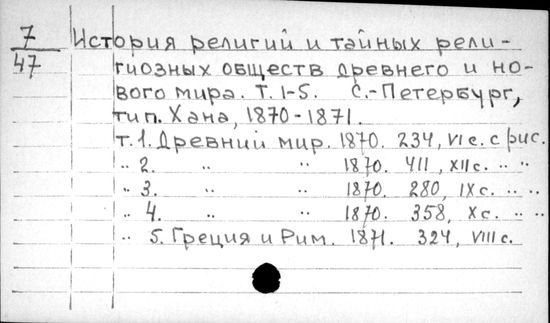 7
47
История религий и тайных рели-
гиозных обществ древнего и но-
вого мира. Т. 1-5. С.-Петербург,
тип. Хана, 1870-1871.
т. 1. Древний мир. 1870. 234, VI с. с рис.
„ 2. „ „ 1870. 411, XII с. „ „
„ 3. „ „ 1870. 280, IX с. „ „
„ 4. „ „ 1870. 358, X с. „ „
„ 5. Греция и Рим. 1871. 324, VIII с.